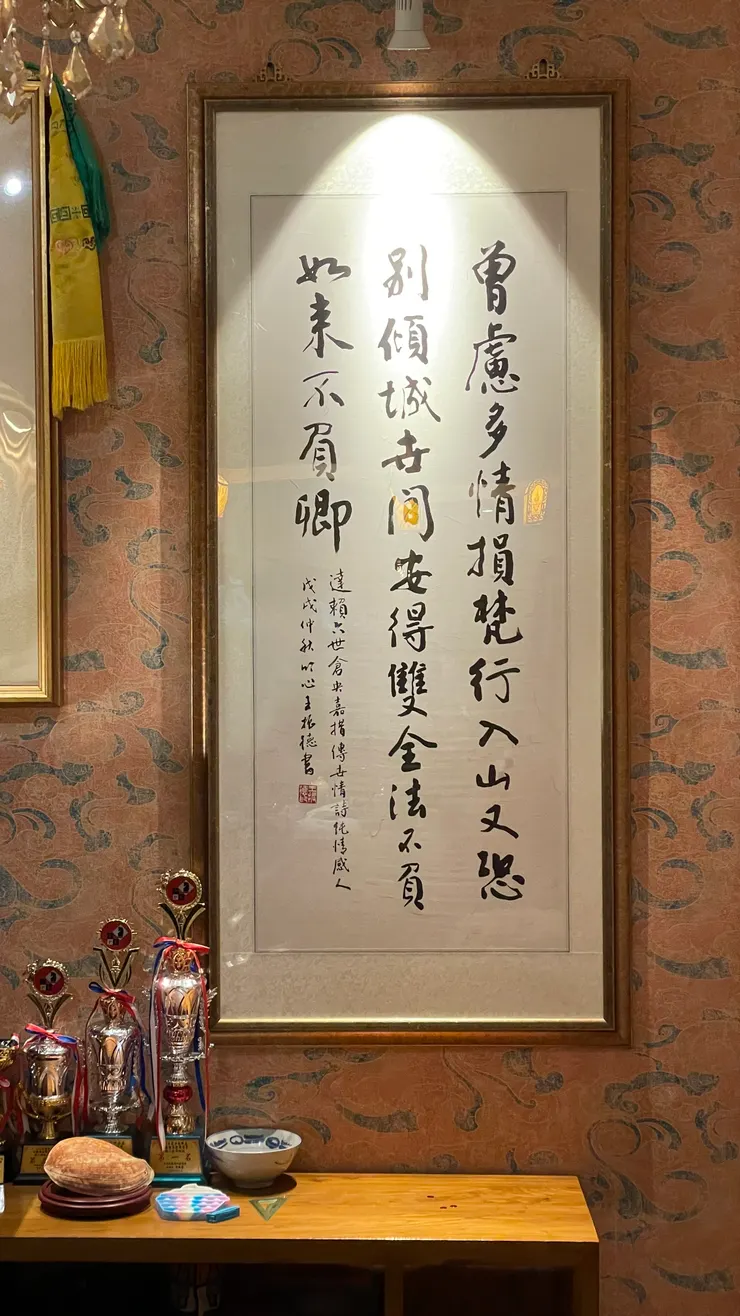 曾慮多情損梵行入山又恐
別傾城世間安得雙全法不負
如来不負卿
達賴六世倉央嘉措傳世情詩純情感人
戊戌仲秋明心王振德書